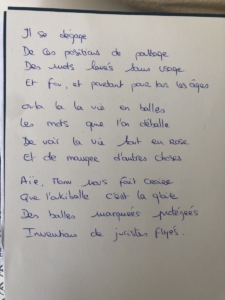 Il se dégage
De ces positions de partage
Des mots lavés sans visage
Et fin, et pendant pour tous les âges
la la vie en balles
Les mots que l'on détalle
De voir la vie tout en rose
Et de manger d'autres choses
Aïe, nous fait croire
Que c'est la gloire
Des balles marquées protégées
Inventions de juristes